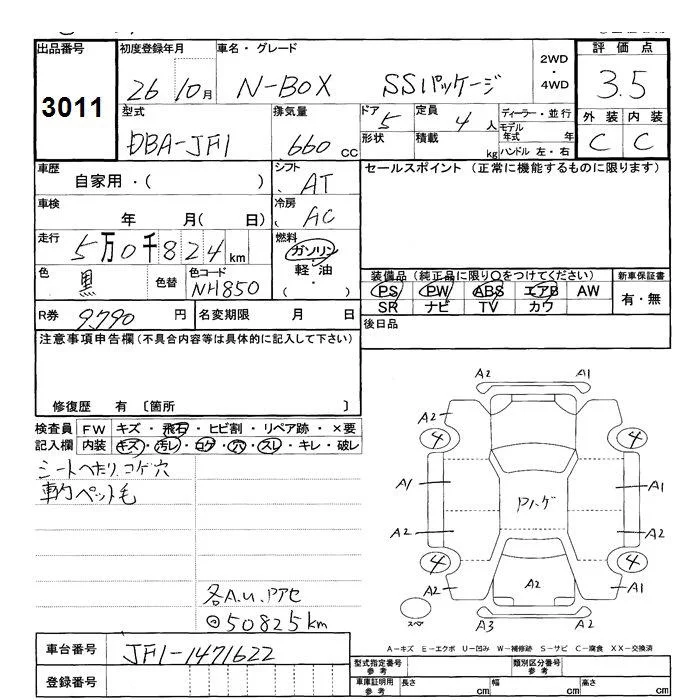 出品番号 初度登録年月 車名・グレード 2WD・4WD 評価点
3011 26 10月 N-BOX SSパッケージ 3.5
型式 排気量 ドア 5 定員 4 人 ディーラー・並行 外装 内装
DBA-JF1 660 cc 形状 積載 kg モデル年式 年 C C
ハンドル 左・右
車歴 シフト セールスポイント (正常に機能するものに限ります)
自家用・( ) AT
車検 年 月( 日) 冷房 AC
走行 5万0千824km 燃料 ガソリン
軽・油
・( )
色 黒 色替 色コード NH850
装備品(純正品に限り○をつけてください) 新車保証書
PS PW ABS エアB AW 有・無
SR ナビ TV カワ
R券 9,790 円 名変期限 月 日 後日品
注意事項申告欄(不具合内容等は具体的に記入して下さい)
修復歴 有 〔箇所 〕
検査員 FW キズ・飛石・ヒビ割・リペア跡・×要
記入欄 内装 キズ・汚レ・コゲ・穴・スレ・キレ・破レ
シートヘたり、コゲ穴
車内ペット毛
A2 A1
A2
4 4
A1 A1
Pハゲ
A2 A2
4 4
A2 A2 A1
A3 A2
スペア
各A.U.Pアセ
⊙50825km
A-キズ E-エクボ U-凹み W-補修跡 S-サビ C-腐食 XX-交換済
車台番号 JF1-1471622
型式指定番号 参考 類別区分番号 参考
登録番号 車庫証明用 参考 長さ cm 幅 cm 高さ cm